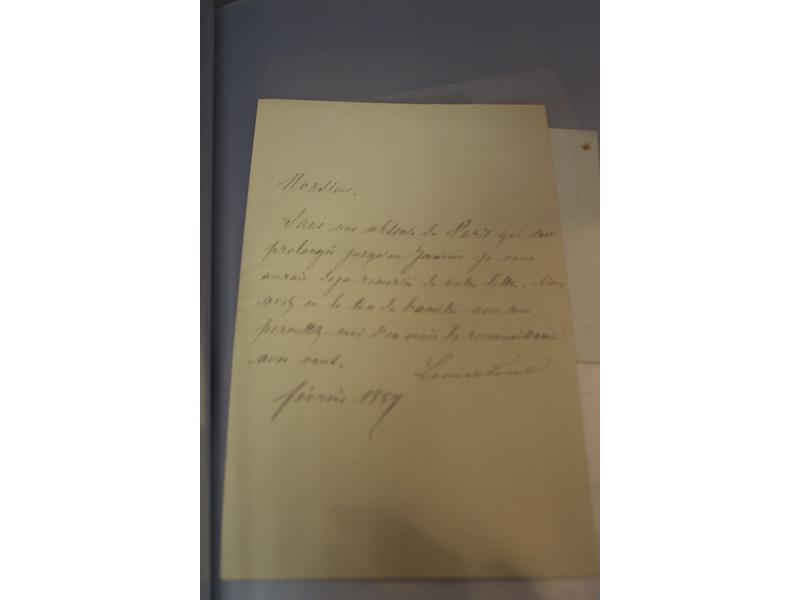 Monsieur,
Sans une absence de Paris qui s'est
prolongée jusqu'en Janvier je vous
aurais deja remercié de votre lettre. Vous
avez eu le ton de l'amitié avec moi,
permettez-moi d'en avoir la reconnaissance
avec vous.
Lamartine
février 1857